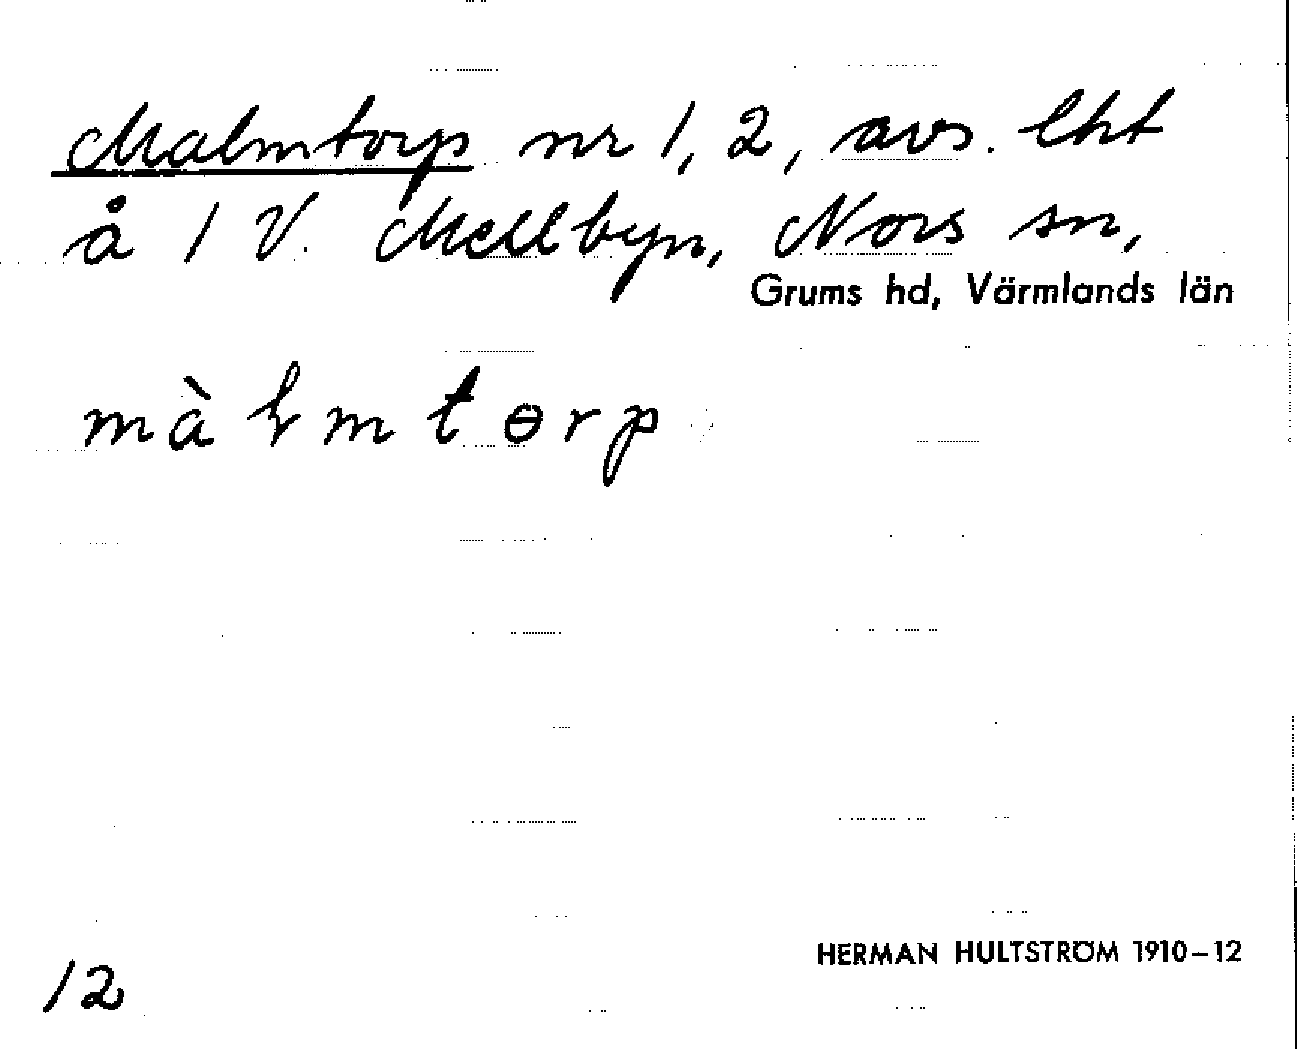 Malmtorp nr 1, 2, avs. lht
å 1 V. Mellbyn, Nors sn,
Grums hd, Värmlands län
màɽmtɵrp
HERMAN HULTSTRÖM 1910–12
12